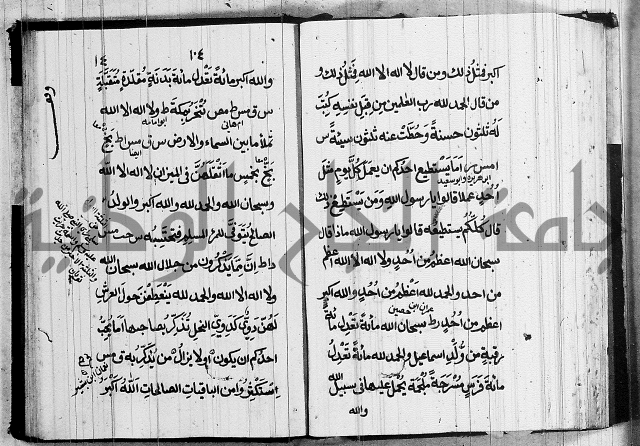 اكبر فمثل ذلك ومن قال لا اله الا الله فمثل ذلك و
من قال الحمد لله رب العلمين من قبل نفسه كتبت
له ثلثون حسنة وحطت عنه ثلثون سيئة س
امس ر اما يستطيع احدكم ان يعمل كل يوم مثل
ابو هريرة وابو سعيد
احد عملا قالوا يا رسول الله ومن يستطيع ذلك
قال كلكم يستطيعه قالوا يا رسول الله ماذا قال
سبحان الله اعظم من احد ولا اله الا الله اعظم
من احد والحمد لله اعظم من احد والله اكبر
عمران ابن حصين
اعظم من احد ر ط سبحان الله مائة تعدل مائة
رقبة من ولد اسماعيل والحمد لله مائة تعدل
مائة فرس مسرجة ملجمة يحمل عليها في سبيل الله
والله
١٠٤
١٠٤
والله اكبر مائة تعدل مائة بدنة مقلدة متقبلة
س ق مس ط مص تنحر بمكة ط ولا اله الا الله
ام هانى
ابو امامة
تملأ ما بين السماء والارض س ق مس ا ط بخ
بخ بخمس ما اثقلهن في الميزان لا اله الا الله
وسبحان الله والحمد لله والله اكبر والولد
الصالح يتوفى للمرء المسلم فيحتسبه س حب مس
ا ط ان مما تذكرون من جلال الله سبحان الله
ولا اله الا الله والحمد لله ينعطفن حول العرش
لهن دوي كدوي النحل تذكر بصاحبها اما يحب
احدكم ان يكون او لا يزال من يذكر به ق مس
استكثروا من الباقيات الصالحات الله اكبر
جامعة النجاح الوطنية